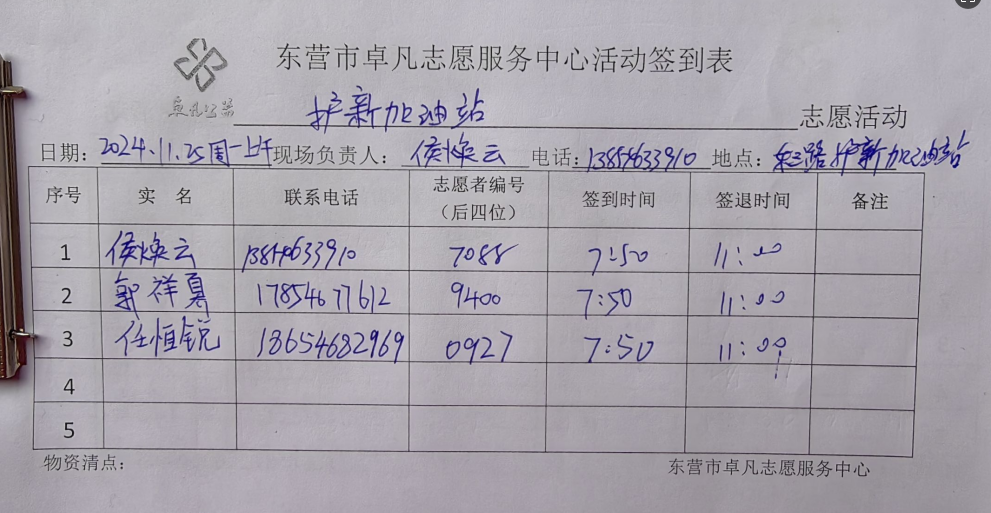 东营市卓凡志愿服务中心活动签到表
护新加油站 志愿活动
日期：2024.11.25周一上午 现场负责人：侯焕云 电话：13854633910 地点：护新加油站
序号 实 名 联系电话 志愿者编号（后四位） 签到时间 签退时间 备注
1 侯焕云 13854633910 7088 7:50 11:00
2 郭祥夏 17854677612 9400 7:50 11:00
3 任恒锐 18654682969 0927 7:50 11:00
4
5
物资清点： 东营市卓凡志愿服务中心